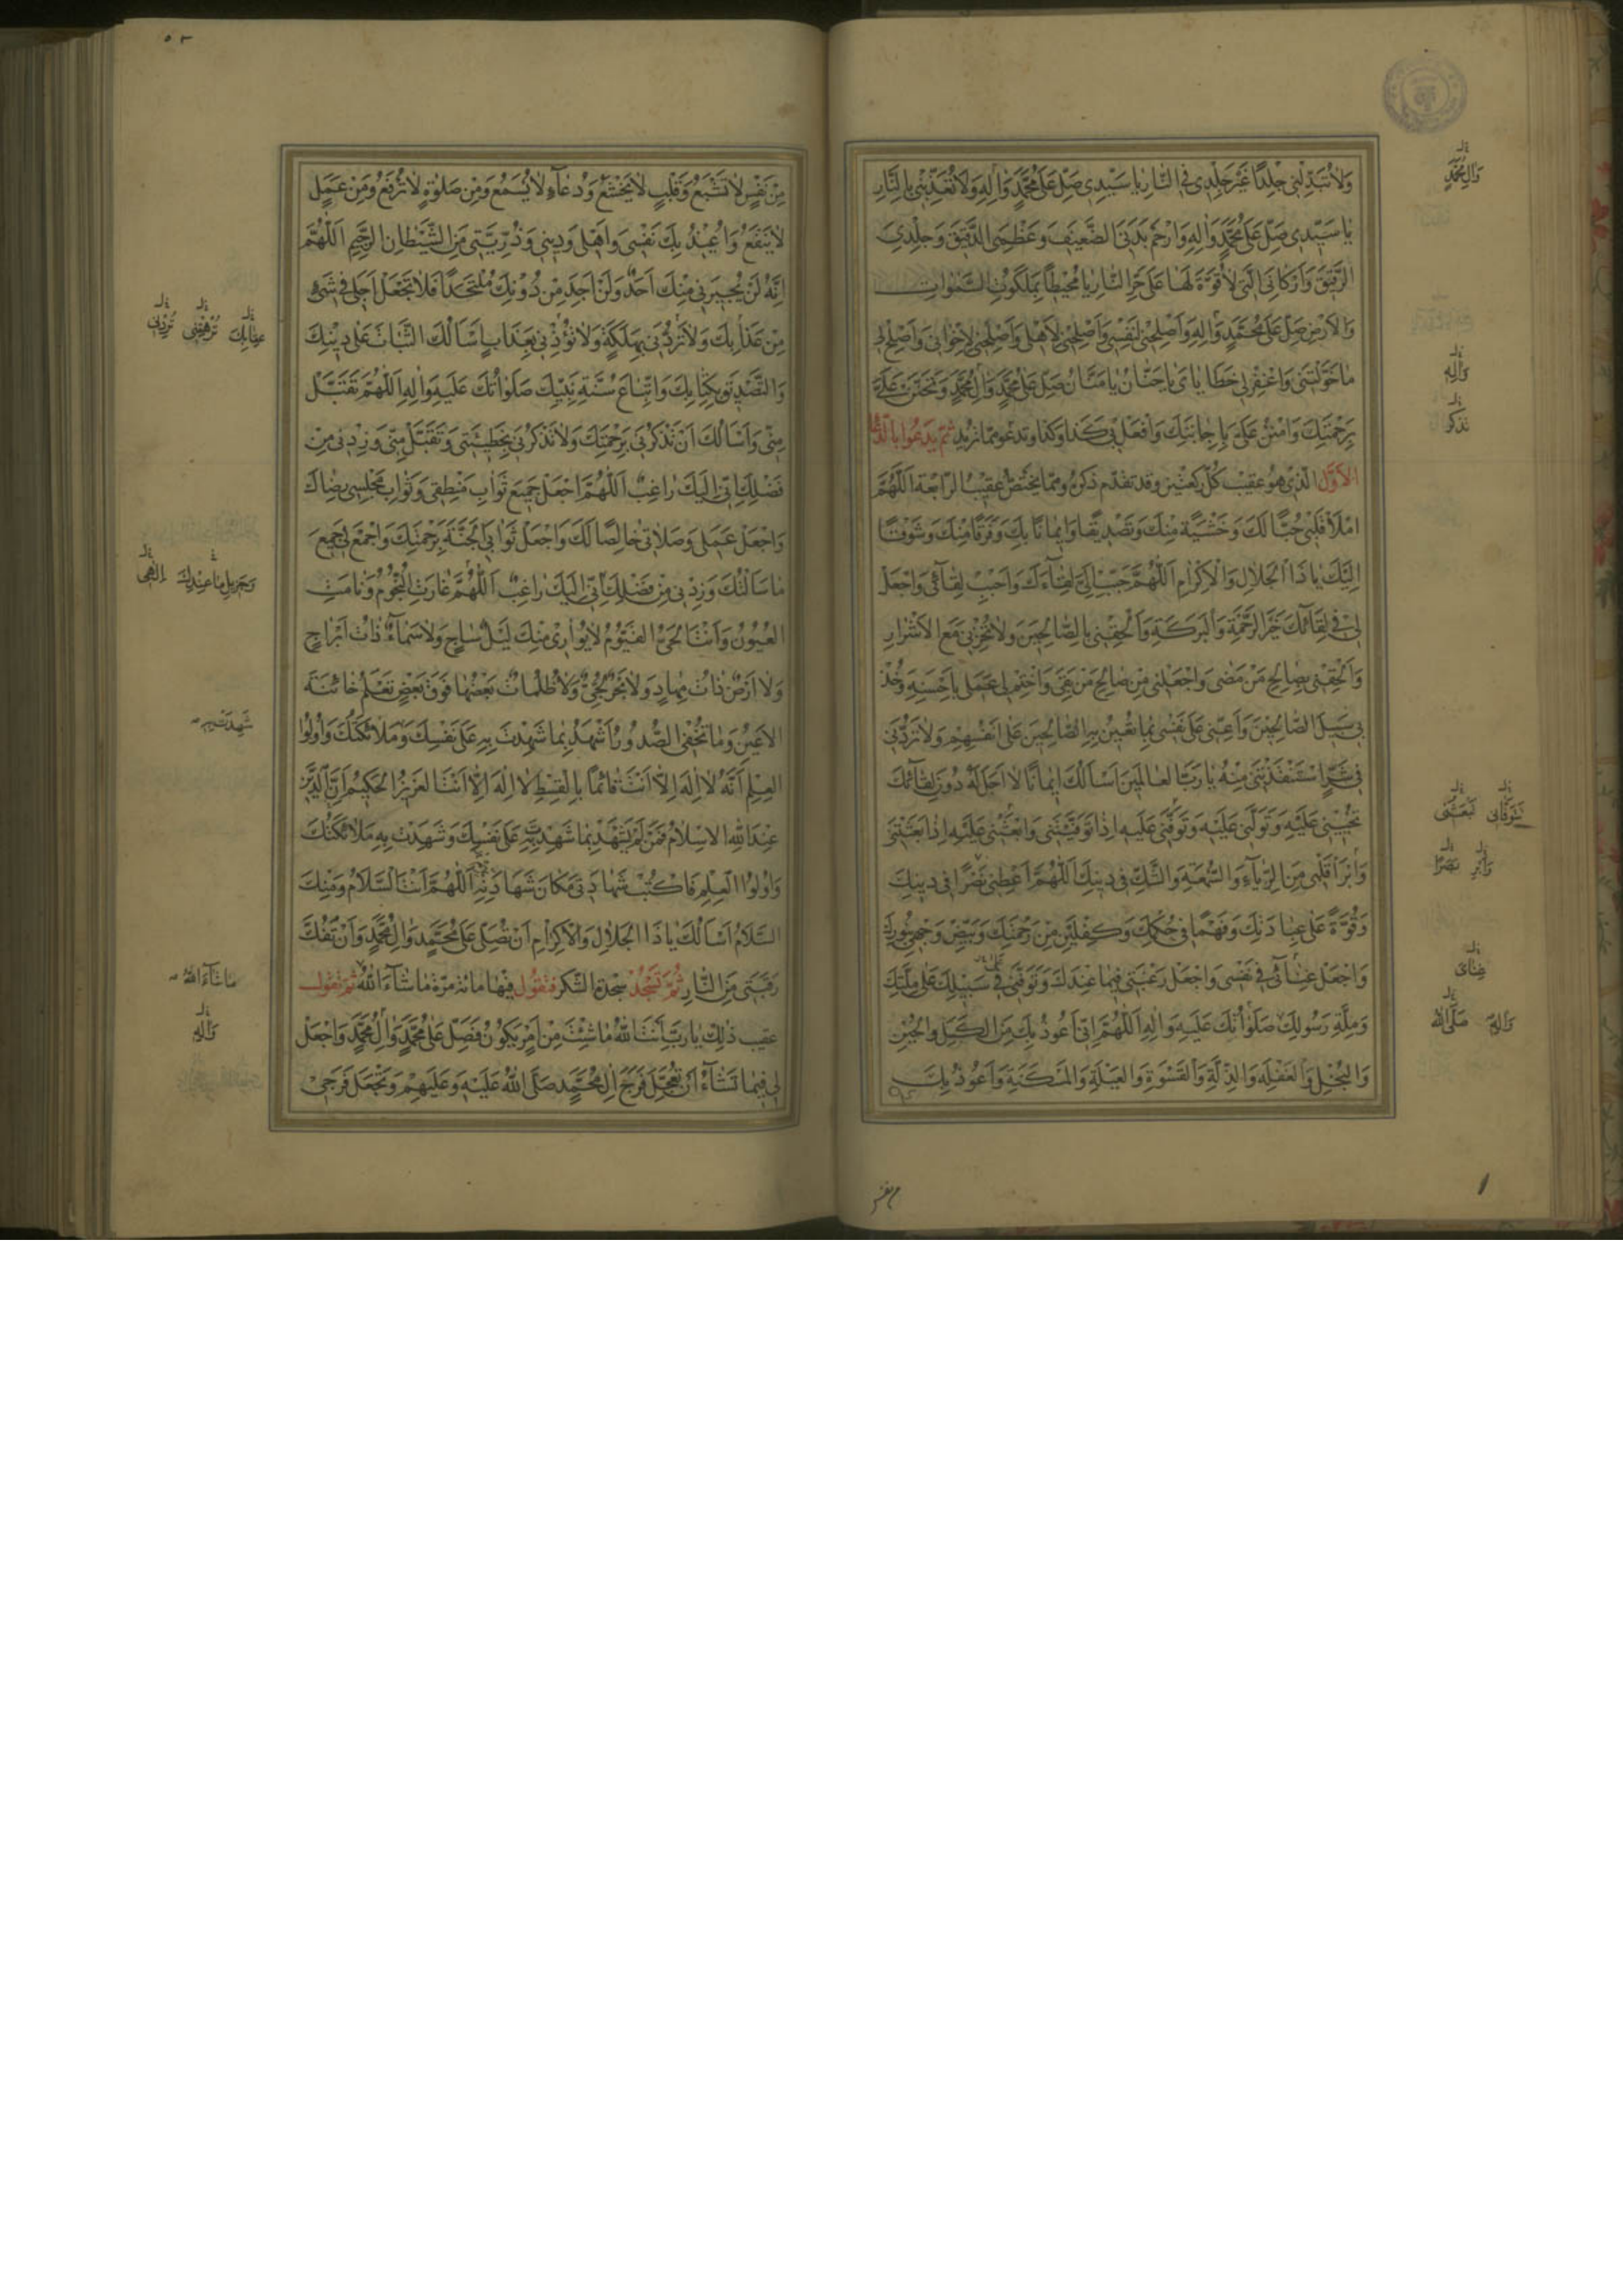 وَلَا تُبَدِّلْنِي جِلْدًا غَيْرَ جِلْدِي فِي النَّارِ يَا سَيِّدِي صَلِّ عَلَى مُحَمَّدٍ وَآلِهِ وَلَا تُعَذِّبْنِي بِالنَّارِ
يَا سَيِّدِي صَلِّ عَلَى مُحَمَّدٍ وَآلِهِ وَارْحَمْ بَدَنِيَ الضَّعِيفَ وَعَظْمِيَ الدَّقِيقَ وَجِلْدِيَ
الرَّقِيقَ وَأَرْكَانِيَ الَّتِي لَا قُوَّةَ لَهَا عَلَى حَرِّ النَّارِ يَا مُحِيطًا بِمَلَكُوتِ السَّمٰوَاتِ
وَالْأَرْضِ صَلِّ عَلَى مُحَمَّدٍ وَآلِهِ وَأَصْلِحْنِي لِنَفْسِي وَأَصْلِحْنِي لِأَهْلِي وَأَصْلِحْنِي لِإِخْوَانِي وَأَصْلِحْ لِي
مَا خَوَّلْتَنِي وَاغْفِرْ لِي خَطَايَايَ يَا حَنَّانُ يَا مَنَّانُ صَلِّ عَلَى مُحَمَّدٍ وَآلِ مُحَمَّدٍ وَتَحَنَّنْ عَلَيَّ
بِرَحْمَتِكَ وَامْنُنْ عَلَيَّ بِإِجَابَتِكَ وَافْعَلْ بِي كَذَا وَكَذَا وَتَدْعُو بِمَا تُرِيدُ ثُمَّ يَدْعُوا بِالدُّعَا
الْأَوَّلِ الَّذِي هُوَ عَقِيبَ كُلِّ رَكْعَتَيْنِ وَقَدْ تَقَدَّمَ ذِكْرُهُ وَمِمَّا يَخْتَصُّ عَقِيبَ الرَّابِعَةِ اَللّٰهُمَّ
امْلَأْ قَلْبِي حُبًّا لَكَ وَخَشْيَةً مِنْكَ وَتَصْدِيقًا وَإِيمَانًا بِكَ وَفَرَقًا مِنْكَ وَشَوْقًا
إِلَيْكَ يَا ذَا الْجَلَالِ وَالْإِكْرَامِ اَللّٰهُمَّ حَبِّبْ إِلَيَّ لِقَاءَكَ وَأَحْبِبْ لِقَائِي وَاجْعَلْ
لِي فِي لِقَائِكَ خَيْرَ الرَّحْمَةِ وَالْبَرَكَةِ وَأَلْحِقْنِي بِالصَّالِحِينَ وَلَا تُخْزِنِي مَعَ الْأَشْرَارِ
وَأَلْحِقْنِي بِصَالِحِ مَنْ مَضَى وَاجْعَلْنِي مِنْ صَالِحِ مَنْ بَقِيَ وَاخْتِمْ لِي عَمَلِي بِأَحْسَنِهِ وَخُذْ
بِي سَبِيلَ الصَّالِحِينَ وَأَعِنِّي عَلَى نَفْسِي بِمَا تُعِينُ بِهِ الصَّالِحِينَ عَلَى أَنْفُسِهِمْ وَلَا تَرُدَّنِي
فِي شَرٍّ اسْتَنْقَذْتَنِي مِنْهُ يَا رَبَّ الْعَالَمِينَ أَسْأَلُكَ إِيمَانًا لَا أَجَلَ لَهُ دُونَ لِقَائِكَ
تُحْيِينِي عَلَيْهِ وَتَوَلَّنِي عَلَيْهِ وَتَوَفَّنِي عَلَيْهِ إِذَا تَوَفَّيْتَنِي وَابْعَثْنِي عَلَيْهِ إِذَا بَعَثْتَنِي
وَأَبْرِأْ قَلْبِي مِنَ الرِّيَاءِ وَالسُّمْعَةِ وَالشَّكِّ فِي دِينِكَ اَللّٰهُمَّ أَعْطِنِي نَصْرًا فِي دِينِكَ
وَقُوَّةً عَلَى عِبَادَتِكَ وَفَهْمًا فِي حُكْمِكَ وَكِفْلَيْنِ مِنْ رَحْمَتِكَ وَبَيِّضْ وَجْهِي بِنُورِكَ
وَاجْعَلْ غِنَائِي فِي نَفْسِي وَاجْعَلْ رَغْبَتِي فِيمَا عِنْدَكَ وَتَوَفَّنِي فِي سَبِيلِكَ عَلَى مِلَّتِكَ
وَمِلَّةِ رَسُولِكَ صَلَوَاتُكَ عَلَيْهِ وَآلِهِ اَللّٰهُمَّ إِنِّي أَعُوذُ بِكَ مِنَ الْكَسَلِ وَالْجُبْنِ
وَالْبُخْلِ وَالْغَفْلَةِ وَالذِّلَّةِ وَالْقَسْوَةِ وَالْعَيْلَةِ وَالْمَسْكَنَةِ وَأَعُوذُ بِكَ
وَآلِ مُحَمَّدٍ
وَآلِهِ
تذكر
تَتَوَفَّانِي تَبْعَثُنِي
وَأَبْرِ بَصَرًا
غِنَايَ
وَآلِهِ صَلَّى اللّٰهُ
من نفس
مِنْ نَفْسٍ لَا تَشْبَعُ وَقَلْبٍ لَا يَخْشَعُ وَدُعَاءٍ لَا يُسْمَعُ وَمِنْ صَلٰوةٍ لَا تُرْفَعُ وَمِنْ عَمَلٍ
لَا يَنْفَعُ وَأُعِيذُ بِكَ نَفْسِي وَأَهْلِي وَدِينِي وَذُرِّيَّتِي مِنَ الشَّيْطَانِ الرَّجِيمِ اَللّٰهُمَّ
إِنَّهُ لَنْ يُجِيرَنِي مِنْكَ أَحَدٌ وَلَنْ أَجِدَ مِنْ دُونِكَ مُلْتَحَدًا فَلَا تَجْعَلْ أَجَلِي فِي شَيْءٍ
مِنْ عَذَابِكَ وَلَا تَرُدَّنِي بِهَلَكَةٍ وَلَا تُؤْذِنِي بِعَذَابٍ أَسْأَلُكَ الثَّبَاتَ عَلَى دِينِكَ
وَالتَّصْدِيقَ بِكِتَابِكَ وَاتِّبَاعَ سُنَّةِ نَبِيِّكَ صَلَوَاتُكَ عَلَيْهِ وَآلِهِ اَللّٰهُمَّ تَقَبَّلْ
مِنِّي وَأَسْأَلُكَ أَنْ تَذْكُرَنِي بِرَحْمَتِكَ وَلَا تَذْكُرَنِي بِخَطِيئَتِي وَتَقَبَّلْ مِنِّي وَزِدْنِي مِنْ
فَضْلِكَ إِنِّي إِلَيْكَ رَاغِبٌ اَللّٰهُمَّ اجْعَلْ جَمِيعَ ثَوَابِ مَنْطِقِي وَثَوَابِ مَجْلِسِي رِضَاكَ
وَاجْعَلْ عَمَلِي وَصَلَاتِي خَالِصًا لَكَ وَاجْعَلْ ثَوَابِيَ الْجَنَّةَ بِرَحْمَتِكَ وَاجْمَعْ لِي جَمِيعَ
مَا سَأَلْتُكَ وَزِدْنِي مِنْ فَضْلِكَ إِنِّي إِلَيْكَ رَاغِبٌ اَللّٰهُمَّ غَارَتِ النُّجُومُ وَنَامَتِ
الْعُيُونُ وَأَنْتَ الْحَيُّ الْقَيُّومُ لَا يُوَارِي مِنْكَ لَيْلٌ سَاجٍ وَلَا سَمَاءٌ ذَاتُ أَبْرَاجٍ
وَلَا أَرْضٌ ذَاتُ مِهَادٍ وَلَا بَحْرٌ لُجِّيٌّ وَلَا ظُلُمَاتٌ بَعْضُهَا فَوْقَ بَعْضٍ تَعْلَمُ خَائِنَةَ
الْأَعْيُنِ وَمَا تُخْفِي الصُّدُورُ أَشْهَدُ بِمَا شَهِدْتَ بِهِ عَلَى نَفْسِكَ وَمَلَائِكَتُكَ وَأُولُوا
الْعِلْمِ أَنَّهُ لَا إِلٰهَ إِلَّا أَنْتَ قَائِمًا بِالْقِسْطِ لَا إِلٰهَ إِلَّا أَنْتَ الْعَزِيزُ الْحَكِيمُ إِنَّ الدِّينَ
عِنْدَ اللّٰهِ الْإِسْلَامُ فَمَنْ لَمْ يَشْهَدْ بِمَا شَهِدْتَ بِهِ عَلَى نَفْسِكَ وَشَهِدَتْ بِهِ مَلَائِكَتُكَ
وَأُولُوا الْعِلْمِ فَاكْتُبْ شَهَادَتِي مَكَانَ شَهَادَتِهِ اَللّٰهُمَّ أَنْتَ السَّلَامُ وَمِنْكَ
السَّلَامُ أَسْأَلُكَ يَا ذَا الْجَلَالِ وَالْإِكْرَامِ أَنْ تُصَلِّيَ عَلَى مُحَمَّدٍ وَآلِ مُحَمَّدٍ وَأَنْ تَفُكَّ
رَقَبَتِي مِنَ النَّارِ ثُمَّ تَسْجُدُ سَجْدَةَ الشُّكْرِ فَتَقُولُ فِيهَا مِائَةَ مَرَّةٍ مَا شَاءَ اللّٰهُ ثُمَّ تَقُولُ
عَقِيبَ ذٰلِكَ يَا رَبِّ أَنْتَ اللّٰهُ مَا شِئْتَ مِنْ أَمْرٍ يَكُونُ فَصَلِّ عَلَى مُحَمَّدٍ وَآلِ مُحَمَّدٍ وَاجْعَلْ
لِي فِيمَا تَشَاءُ أَنْ تُعَجِّلَ فَرَجَ آلِ مُحَمَّدٍ صَلَّى اللّٰهُ عَلَيْهِ وَعَلَيْهِمْ وَتَجْعَلَ فَرَجِي
عِقَابِكَ تُرْهِقْنِي تُرْدِنِي
إِلٰهِي
شَهِدْتَ بِهِ
مَا شَاءَ اللّٰهُ
وَآلِهِ